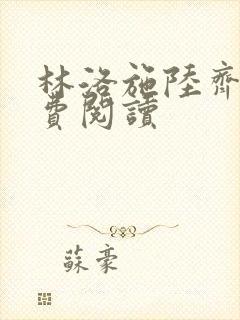 林洛施陸齊
費閱讀
蘇豪